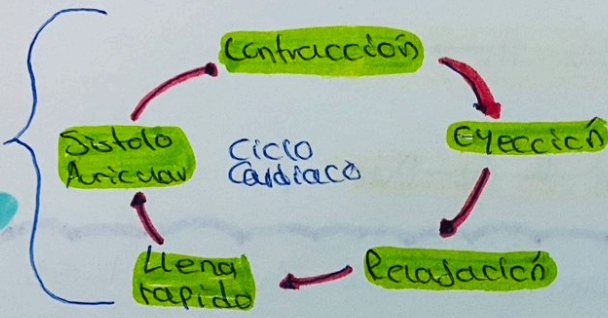 Contracción
Eyección
Relajación
Llena
rapido
Sistole
Auricular
Ciclo
Cardiaco